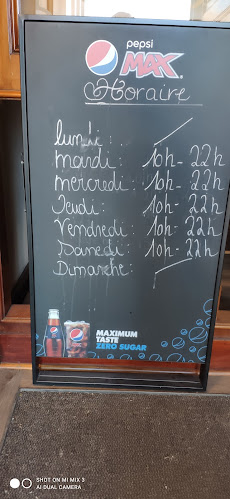 pepsi
MAX
Horaire
lundi :
mardi : 10h - 22h
mercredi : 10h - 22h
Jeudi : 10h - 22h
Vendredi : 10h - 22h
Samedi : 10h - 22h
Dimanche :
MAXIMUM
TASTE
ZERO SUGAR
SHOT ON MI MIX 3
AI DUAL CAMERA